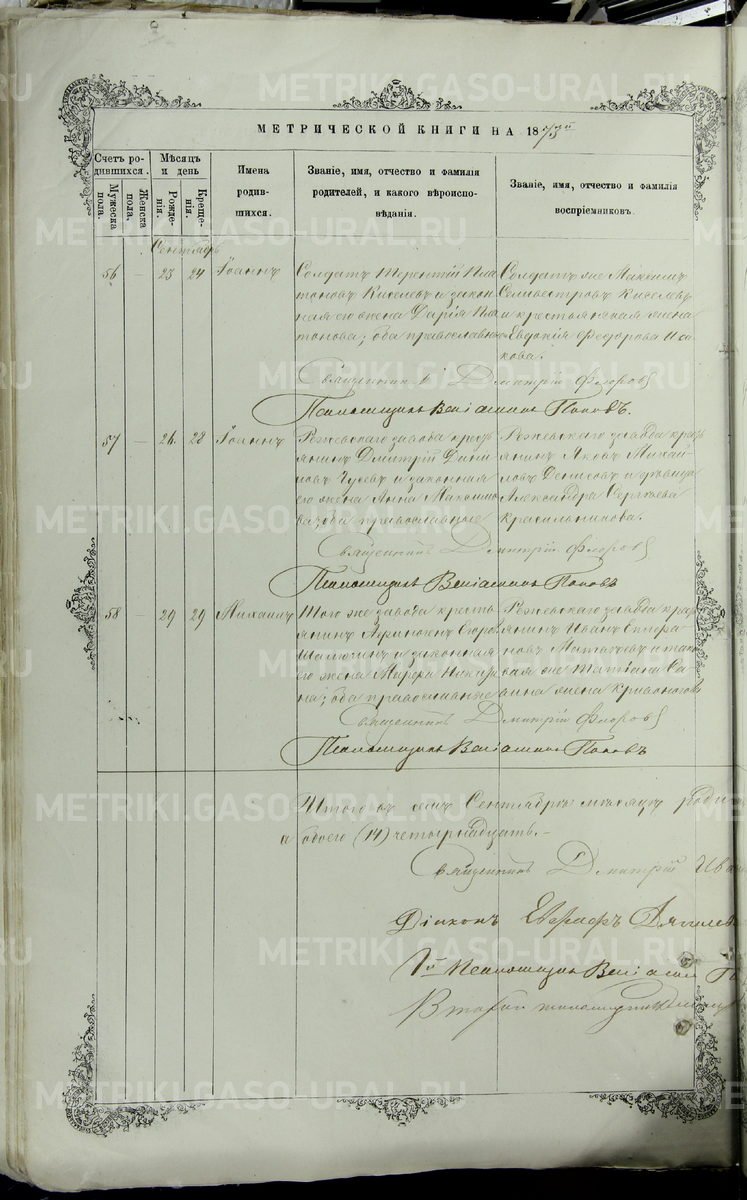 МЕТРИЧЕСКОЙ КНИГИ НА 1873й
Счетъ родившихся.
Мужеска пола.
Женска пола.
Мѣсяцъ и день
Рожденія.
Крещенія.
Имена родившихся.
Званіе, имя, отчество и фамилія родителей, и какого вѣроисповѣданія.
Званіе, имя, отчество и фамилія воспріемниковъ.
Сентябрь
56 — 23 24 Іоаннъ
Солдатъ Терентій Пла
тоновъ Киселевъ и закон
ная его жена Дарія Пла
тонова; оба православные
Солдатъ же Максимъ
Селивестровъ Киселевъ
и крестьянская жена
Евдокія Федорова Иса
кова.
Священникъ Димитрій Флоровъ
Псаломщикъ Веніаминъ Поповъ.
57 — 26 28 Іоаннъ
Режевскаго завода крест
янинъ Дмитрій
и законная
его жена Анна Максимо
ва; оба православные
Режевскаго завода крест
янинъ Яковъ Михай
ловъ Денисовъ и
Александра Сергѣева
Красильникова.
Священникъ Димитрій Флоровъ
Псаломщикъ Веніаминъ Поповъ
58 — 29 29 Михаилъ
Того же завода кресть
янинъ Афиногенъ Егоровъ
и законная
его жена Марфа
на; оба православные
Режевскаго завода крест
янинъ Иванъ
новъ и
же Татіана Са
вина жена Кривоногова
Священникъ Димитрій Флоровъ
Псаломщикъ Веніаминъ Поповъ
Итого въ семъ Сентябрѣ мѣсяцѣ родил
а обоего (14) четырнадцать. —
Священникъ Димитрій
Діаконъ Евграфъ
1й Псаломщикъ Веніамин
Второй псаломщикъ
METRIKI.GASO-URAL.RU